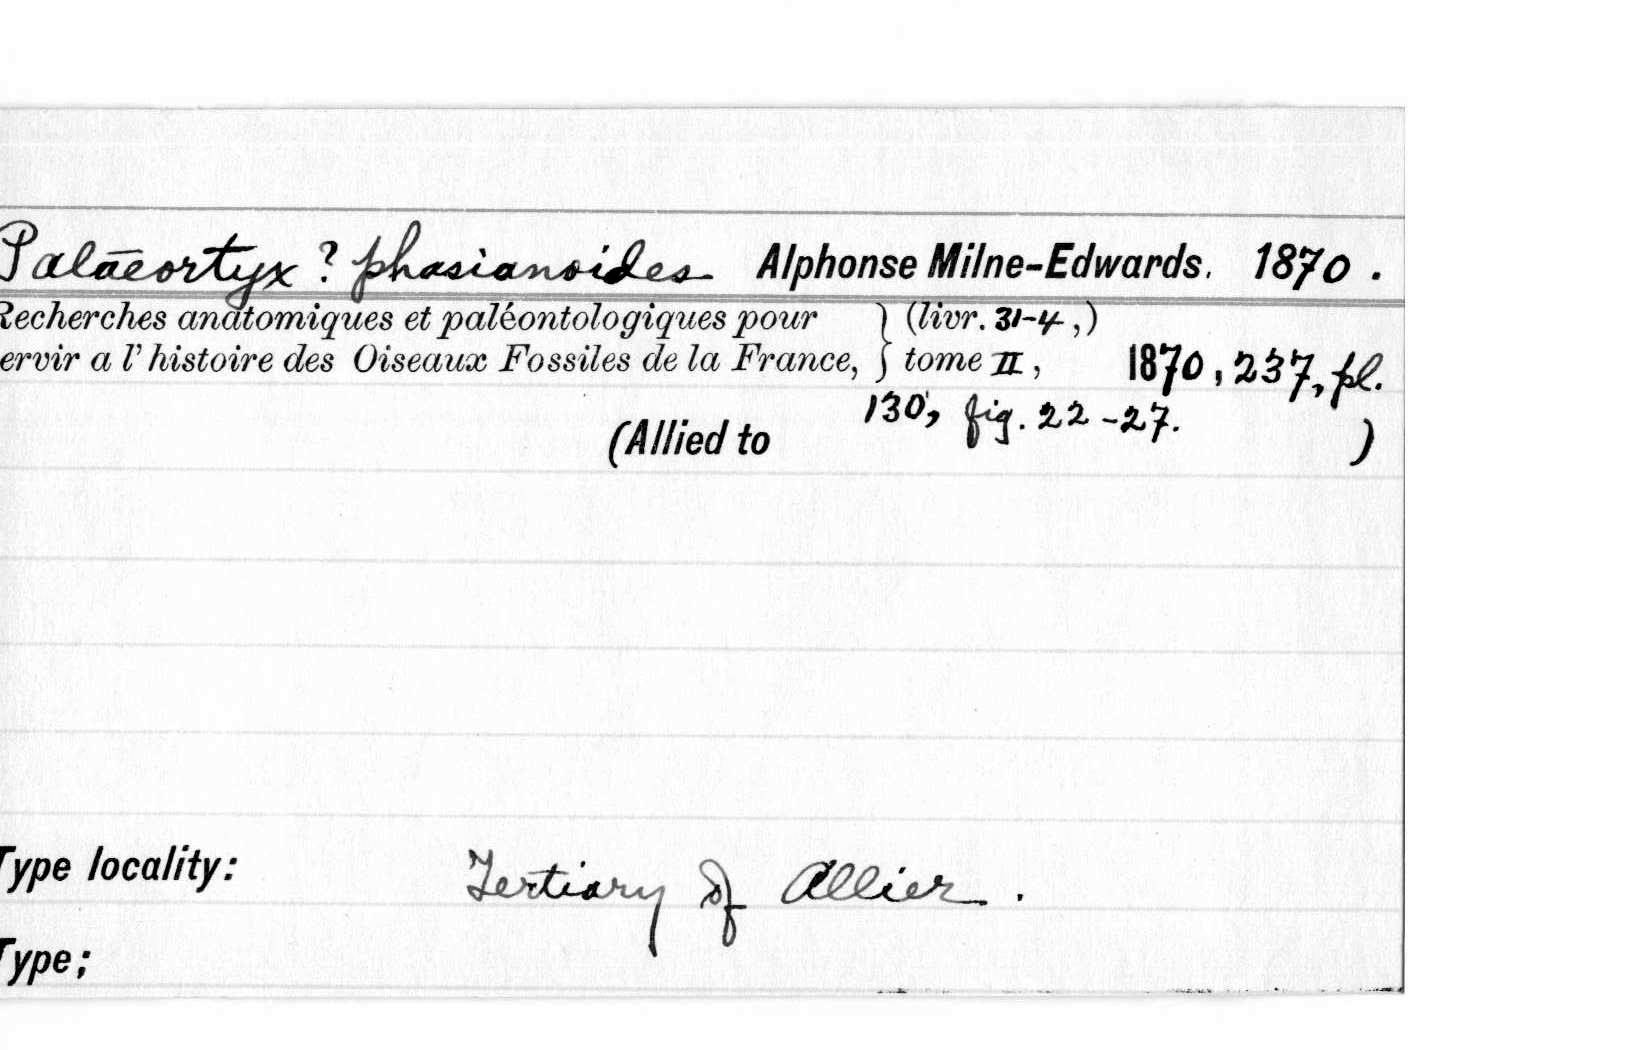 Palaeortyx ? phasianoides Alphonse Milne-Edwards. 1870 .
Recherches anatomiques et paléontologiques pour } (livr. 31-4,)
ervir a l'histoire des Oiseaux Fossiles de la France, } tome II, 1870, 237, pl.
130, fig. 22-27.
(Allied to )
Type locality: Tertiary of Allier .
Type;